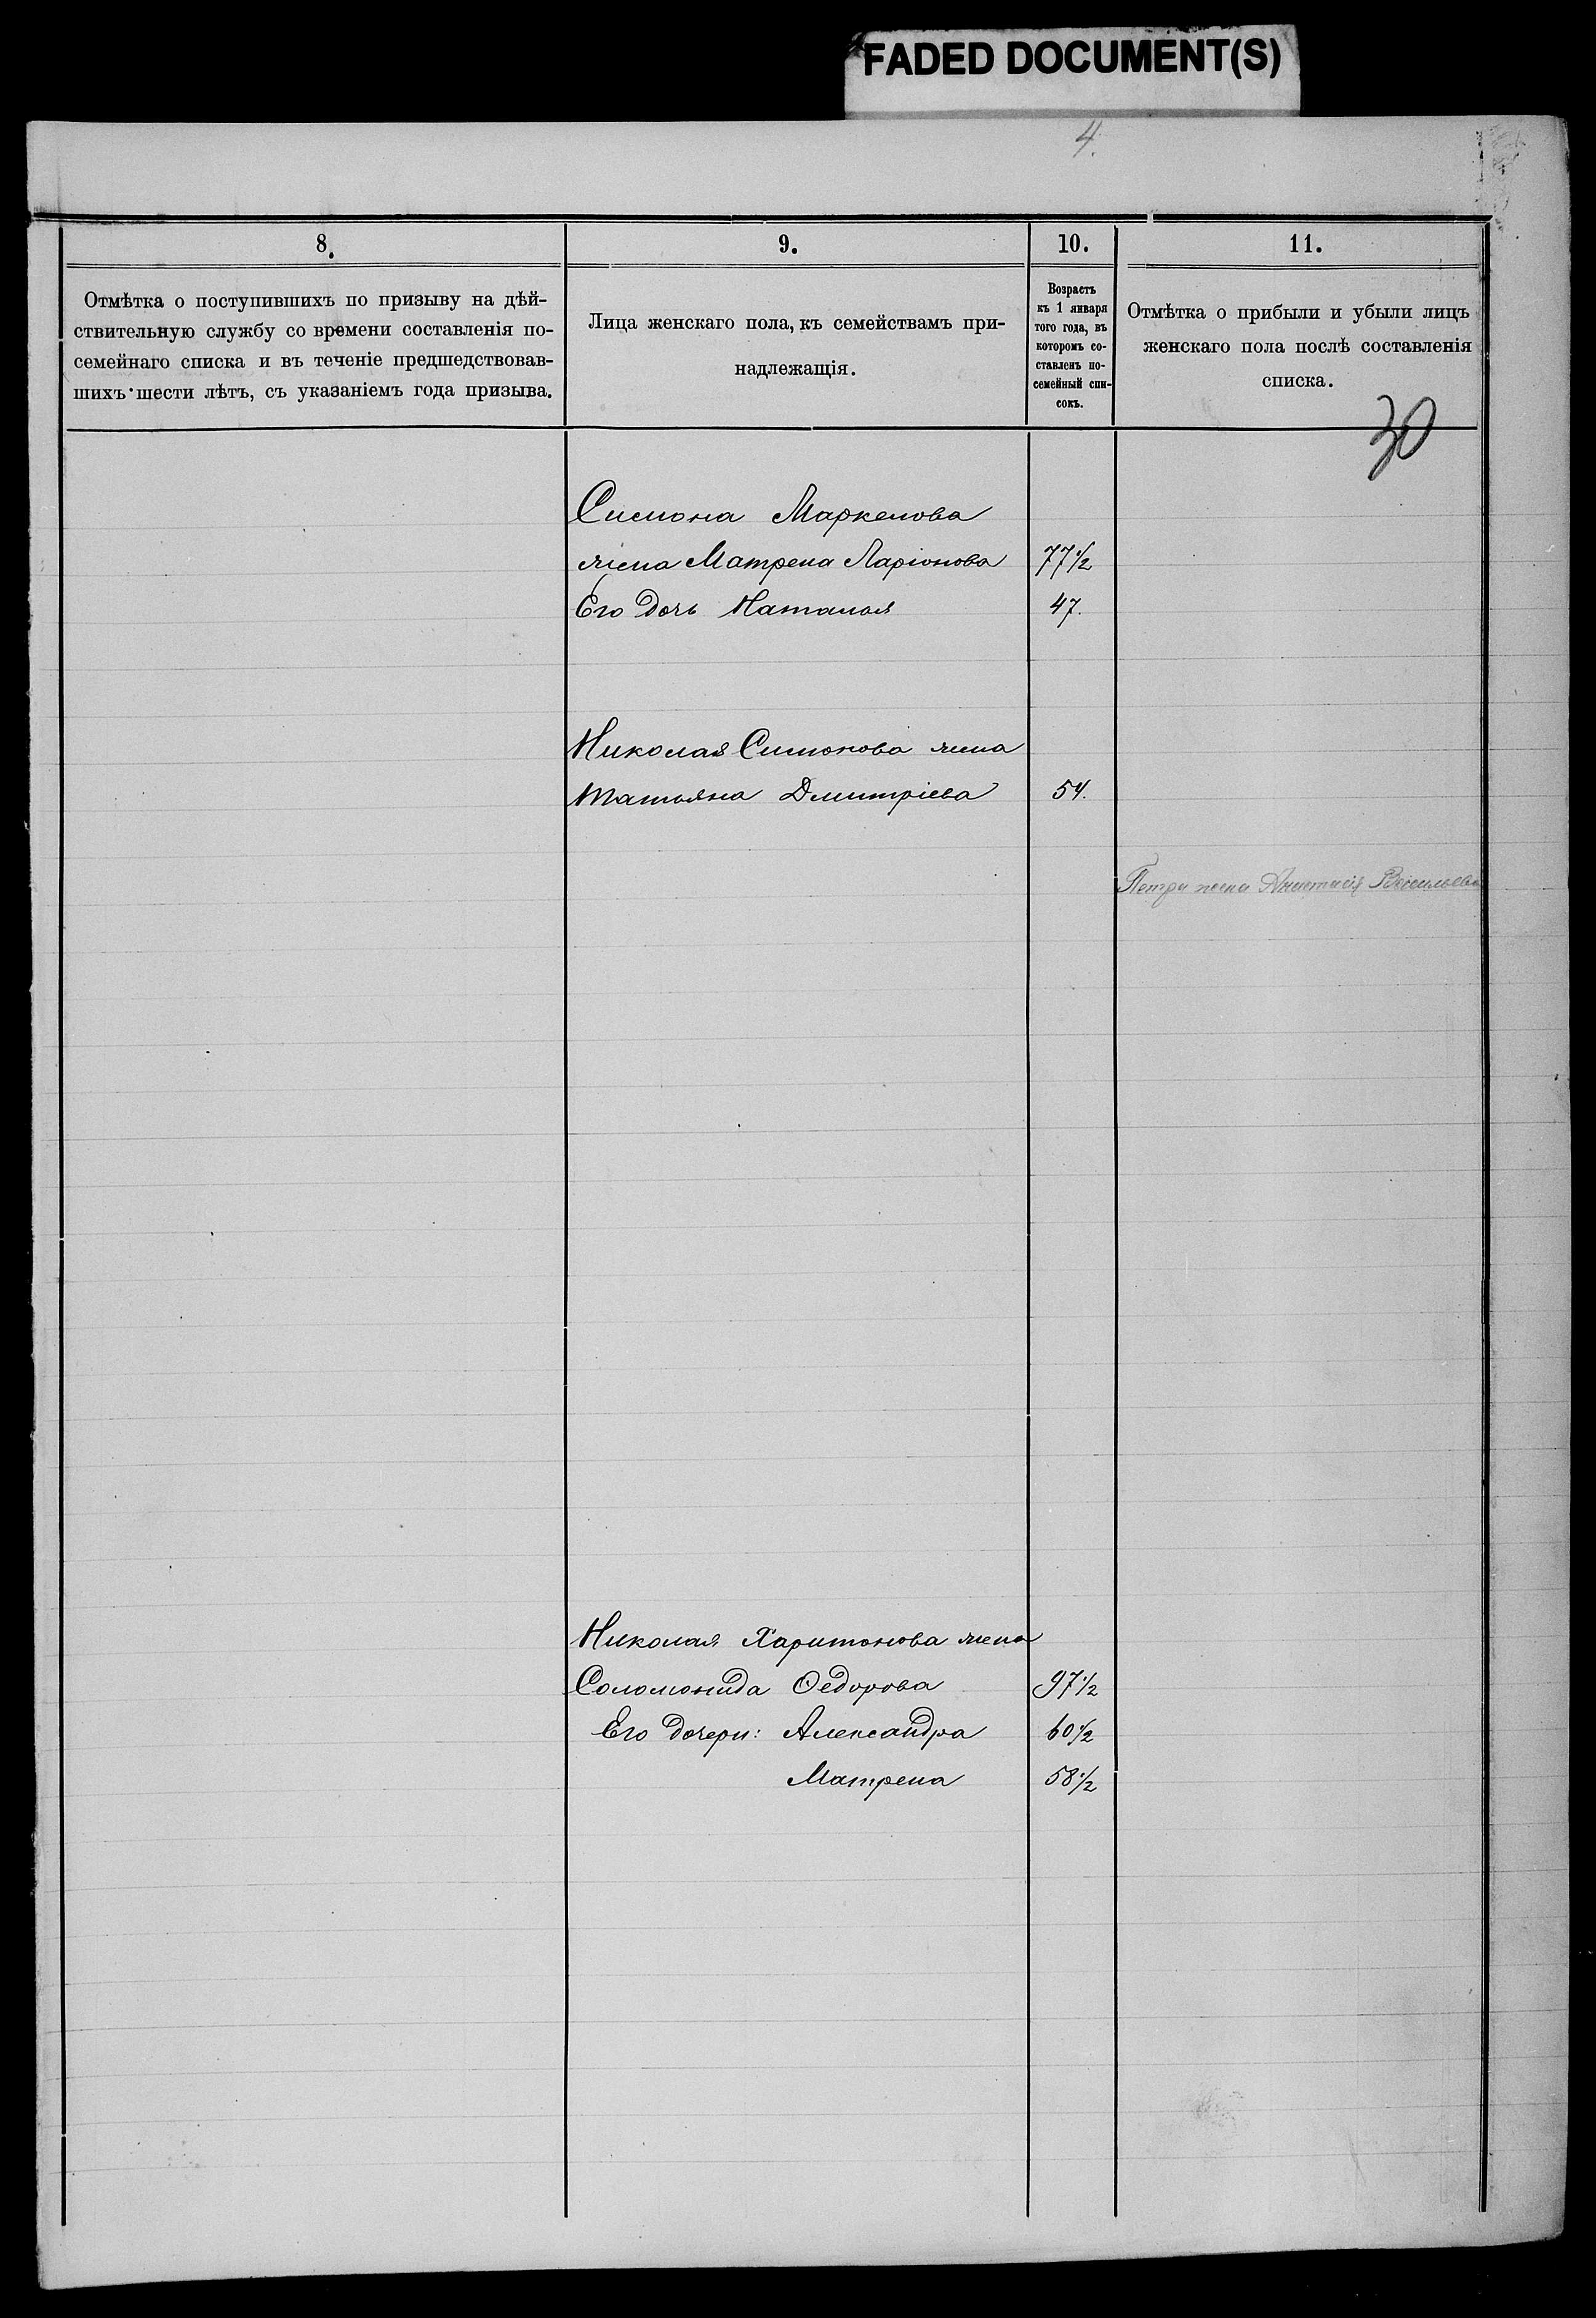 FADED DOCUMENT(S)
4.
8.
Отмѣтка о поступившихъ по призыву на дѣй-
ствительную службу со времени составленія по-
семейнаго списка и въ теченіе предшедствовав-
шихъ шести лѣтъ, съ указаніемъ года призыва.
9.
Лица женскаго пола, къ семействамъ при-
надлежащія.
10.
Возрастъ
къ 1 января
того года, въ
которомъ со-
ставленъ по-
семейный спи-
сокъ.
11.
Отмѣтка о прибыли и убыли лицъ
женскаго пола послѣ составленія
списка.
30
Симона Маркелова
жена Матрена Ларіонова 77 1/2
Его дочь Наталья 47.
Николая Симонова жена
Татьяна Дмитріева 54.
Петра жена Анастасія Васильева
Николая Харитонова жена
Соломонида Ѳедорова 97 1/2
Его дочери: Александра 60 1/2
Матрена 58 1/2